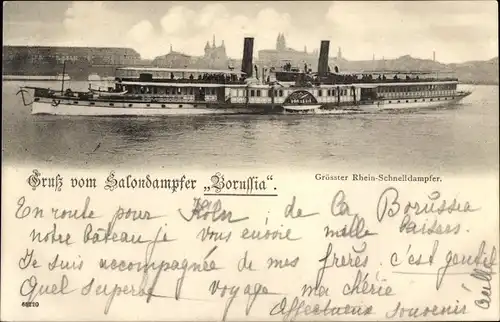 Gruß vom Salondampfer „Borussia“.
Grösster Rhein-Schnelldampfer.
En route pour Köln de La Borussia
notre bateau je vous envoie mille baisers.
Je suis accompagnée de mes frères c'est gentil
Quel superbe voyage ma chérie
Affectueux souvenir